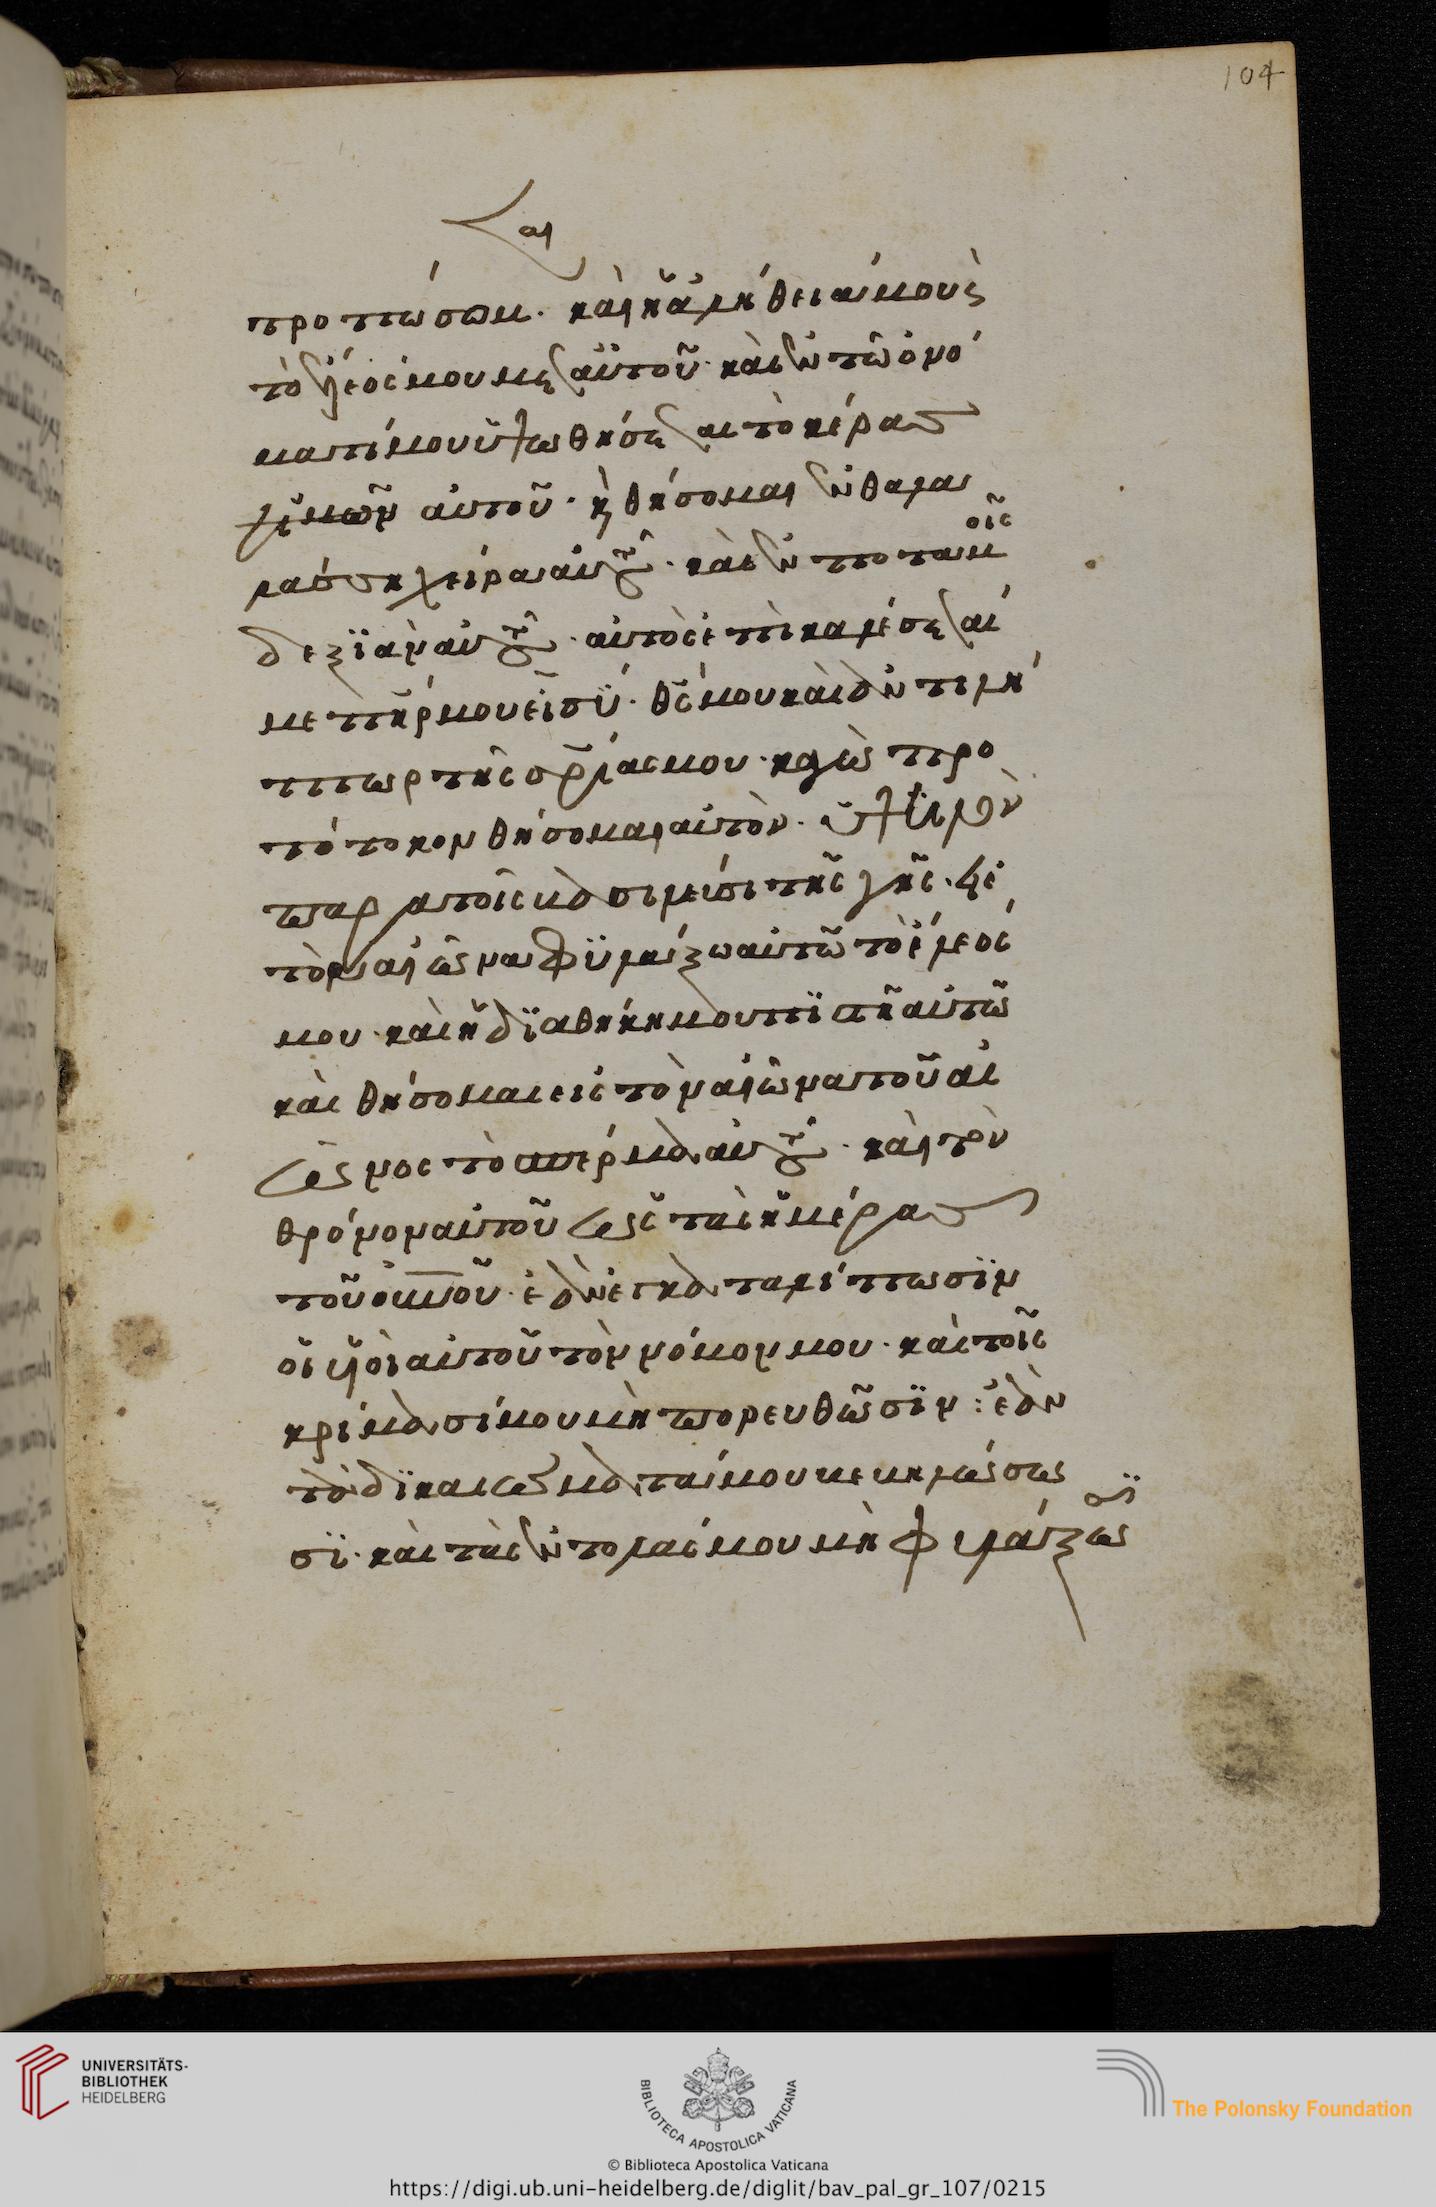 104
αι
προ πώσου. καὶ ἡ ἀλήθειά μου κ
τὸ ἔλεός μου μετ αὐτοῦ. καὶ ἐν τῶ ὀνό
ματί μου ὑψωθήσεται τὸ κέρας
αὐτοῦ. κ θήσομαι ἐν θαλάσ
ση χεῖρα αὐτοῦ. καὶ ἐν ποταμοῖς
δεξϊὰν αὐτοῦ. αὐτὸς ἐπικαλέσεταί
με πηρ μου εἶ σύ. θς μου καὶ ἀντιλή
πτωρ τῆς σρίας μου. καγὼ πρω
τότοκον θήσομαι αὐτὸν. ὑψηλὸν
παρὰ τοῖς βασιλεῦσι τῆς γῆς. εἰς
τὸν αἰῶνα φϋλάξω αὐτῶ τὸ ἔλεός
μου. καὶ ἡ δϊαθήκη μου πϊστὴ αὐτῶ
καὶ θήσομαι εἰς τὸν αἰῶνα τοῦ αἰ
ῶνος τὸ σπέρμα αὐτοῦ. καὶ τὸν
θρόνον αὐτοῦ ὡς τὰς ἡμέρας
τοῦ οὐνοῦ. ἐὰν ἐγκαταλίπωσϊν
οἱ υἱοὶ αὐτοῦ τὸν νόμον μου. καὶ τοῖς
κρίμασί μου μὴ πορευθῶσϊν: ἐὰν
τὰ δϊκαιώματά μου βεβηλώσω
σϊ. καὶ τὰς ἐντολάς μου μὴ φυλάξω
UNIVERSITÄTS-
BIBLIOTHEK
HEIDELBERG
BIBLIOTECA APOSTOLICA VATICANA
The Polonsky Foundation
© Biblioteca Apostolica Vaticana
https://digi.ub.uni-heidelberg.de/diglit/bav_pal_gr_107/0215